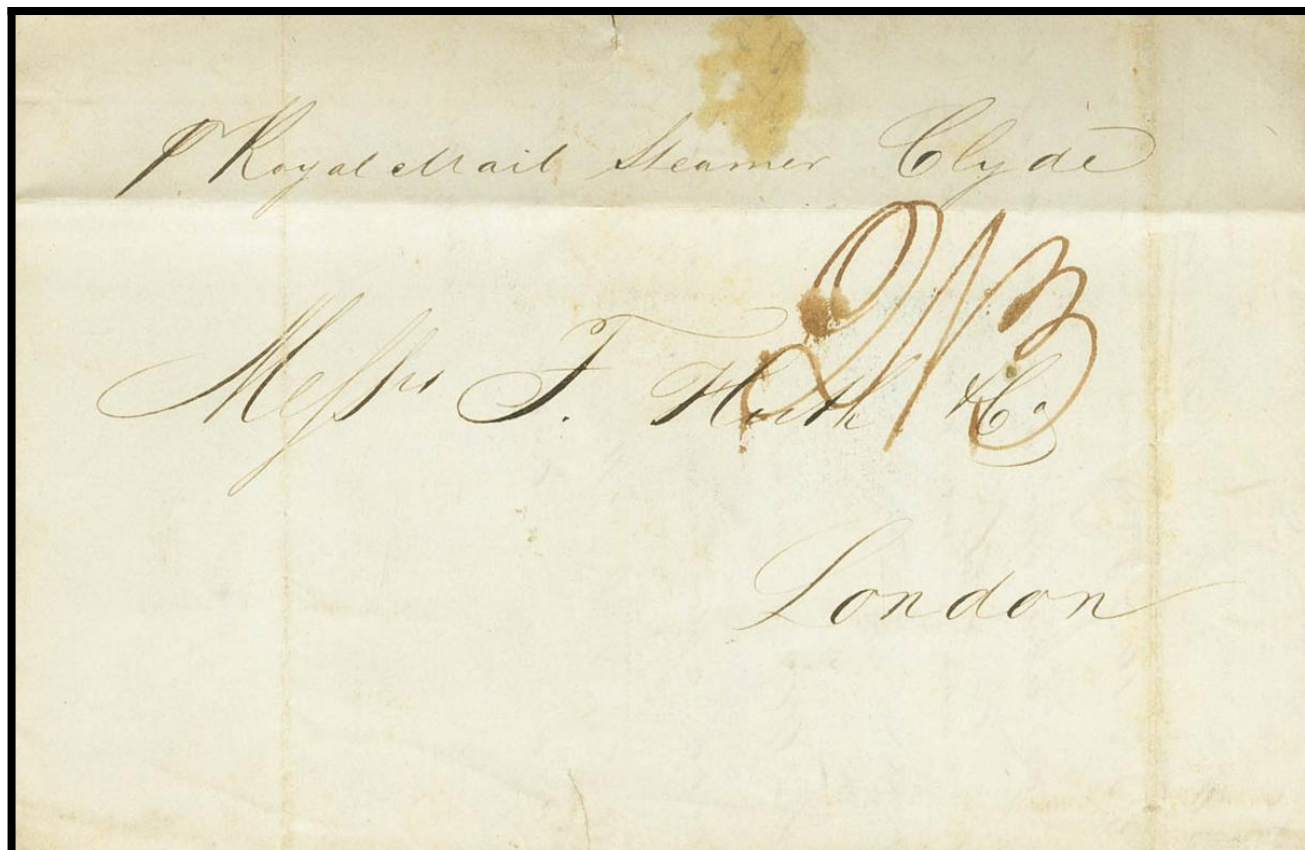 p. Royal Mail Steamer Clyde
2/3
Messrs F. Huth & Co
London